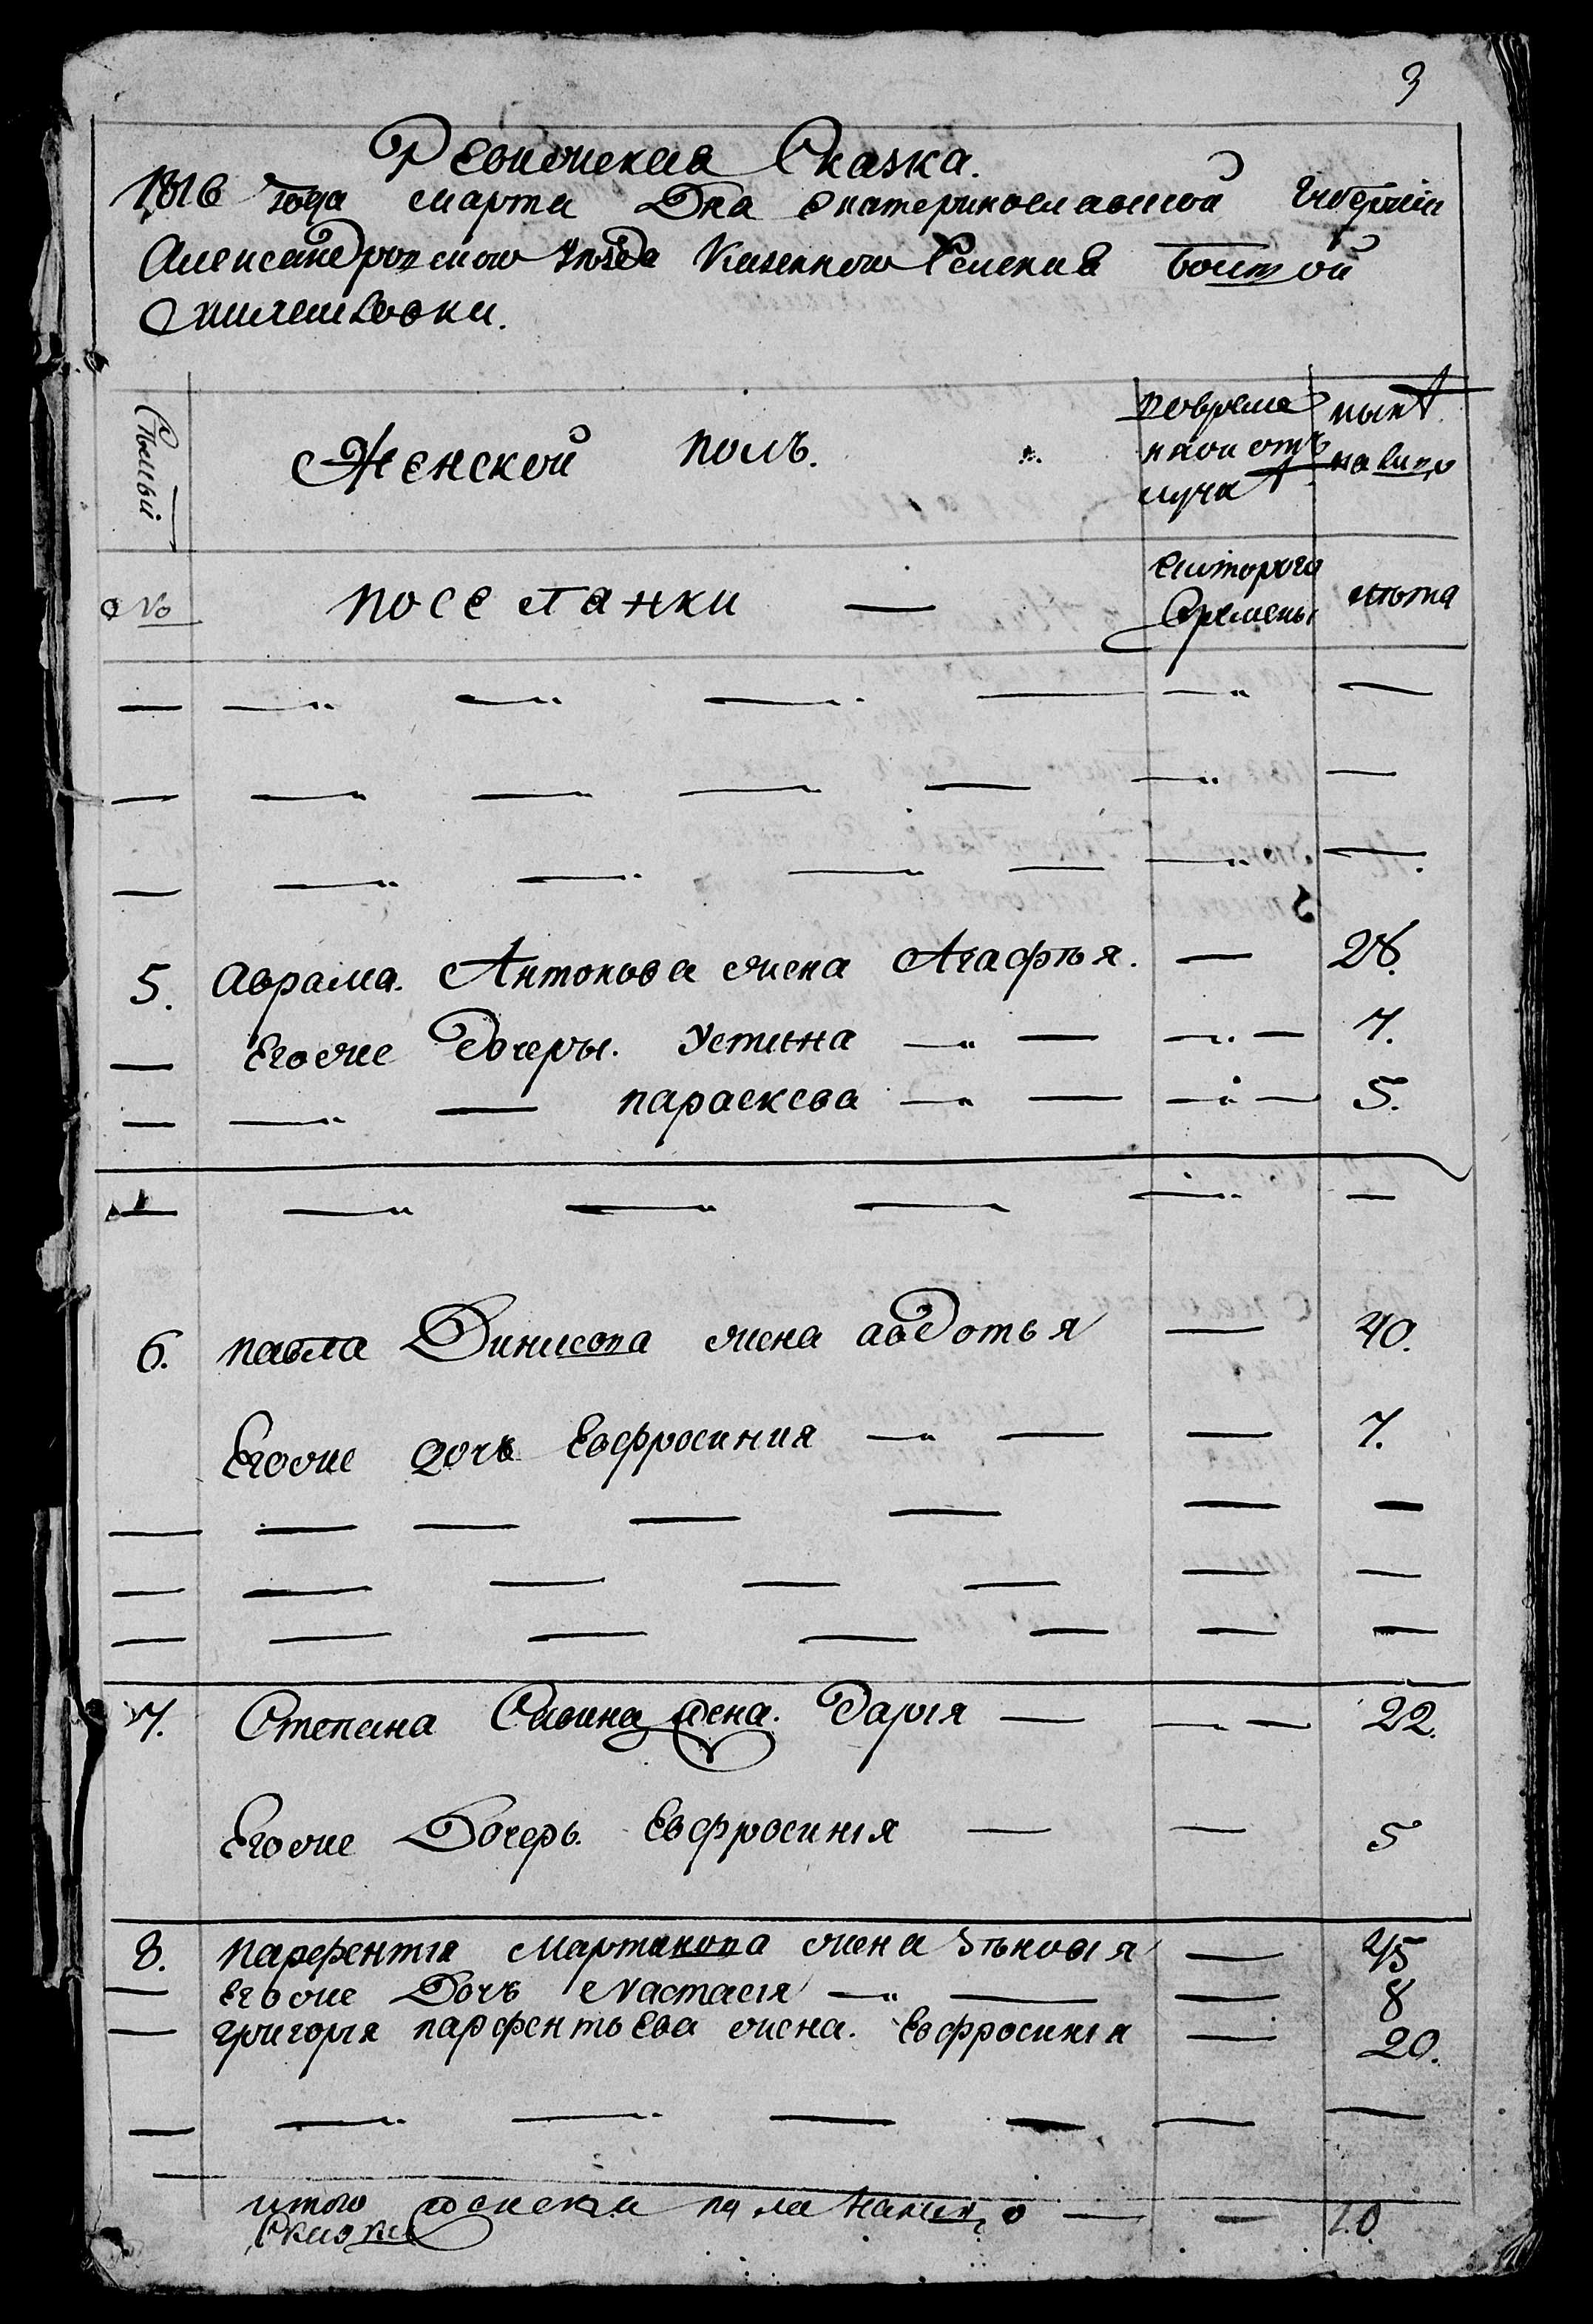 3
Ревижская Сказка.
1816 года марта Дня Екатеринославской Губернии
Александровского уезда Казенного Селения
Женской полъ.
во времянной отлучкѣ
нынѣ на лицо
№
поселянки —
с которого времены
лѣта
5. Аврама Антонова жена Агафья. — 28.
Егоже Дочеры. Устина — — — 7.
— — параскева — — — 5.
6. павла Динисова жена авдотья — 40.
Егоже дочь Евфросиния — — — 7.
7. Степана Савина жена. Дарiя — — 22.
Егоже Дочерь. Евфросинiя — — 5
8. парфентiя мартинова жена Зѣновiя — 45
— Егоже Дочь Настасiя — — — 8
— григорiя парфентьева жена. Евфросинiя — 20.
итого женска пола налицо — — 10.